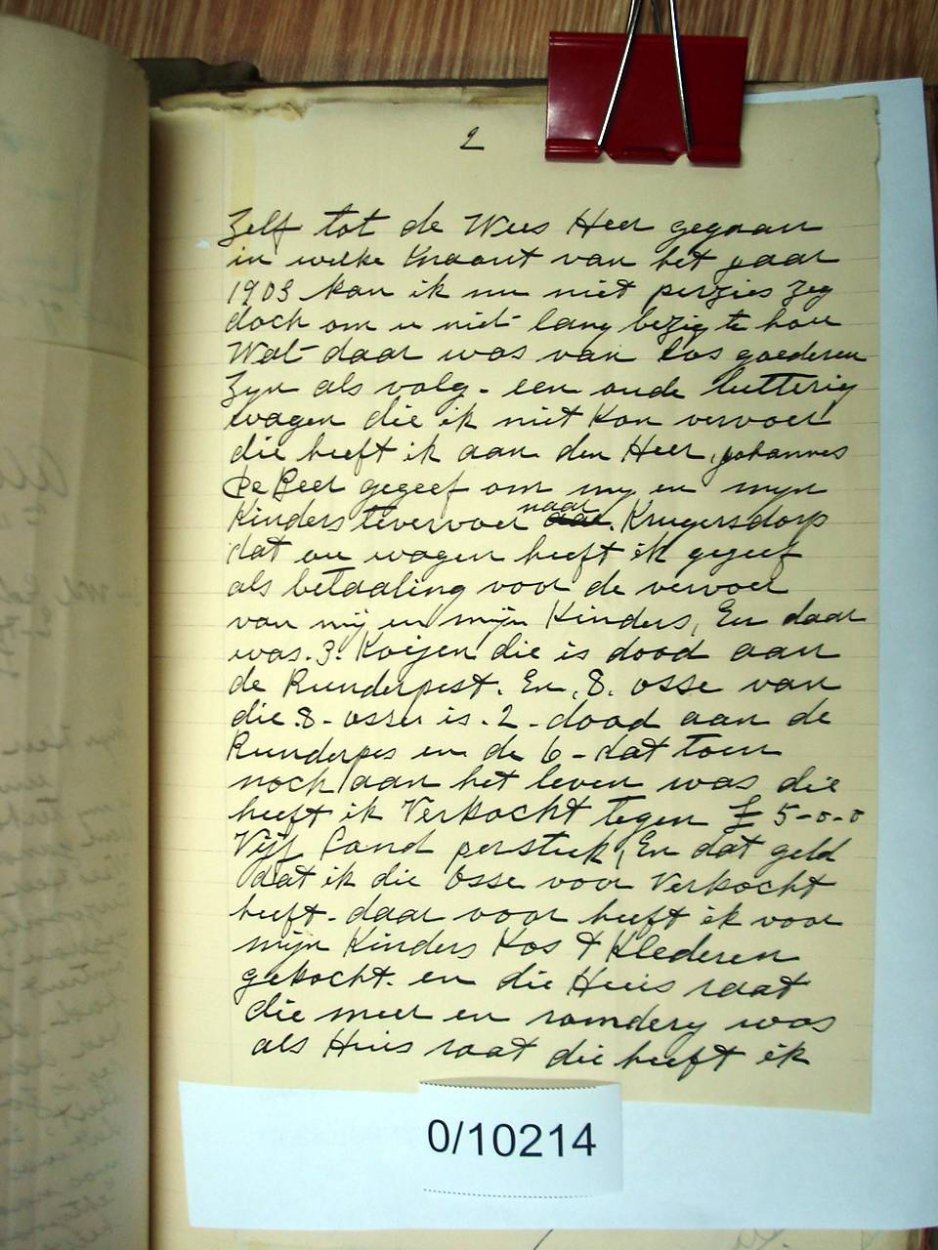 2
Zelf tot de Wees Heer gegaan
in welke maant van het jaar
1903 kan ik nu niet perzies zeg
doch om u niet lang bezig te hou
Wat daar was van los goederen
Zyn als volg - een oude
wagen die ik niet kon vervoer
die heeft ik aan den Heer, johannes
De Beer gegeef om my en myn
Kinders tevervoer naar Krugersdorp
dat ou wagen heeft ik gegeef
als betaaling voor de vervoer
van mij en mijn Kinders, En daar
was .3. Koijen die is dood aan
de Runderpest. En .8. osse van
die .8 - ossen is .2 - dood aan de
Runderpes en de 6 - dat toen
noch aan het leven was die
heeft ik Verkocht tegen £ 5-0-0
Vijf Pond perstuk, En dat geld
dat ik die Osse voor Verkocht
heeft - daar voor heeft ik voor
mijn Kinders Kos & Klederen
gekocht. en die Huis raat
die meer en was
als Huis raat die heeft ik
0/10214